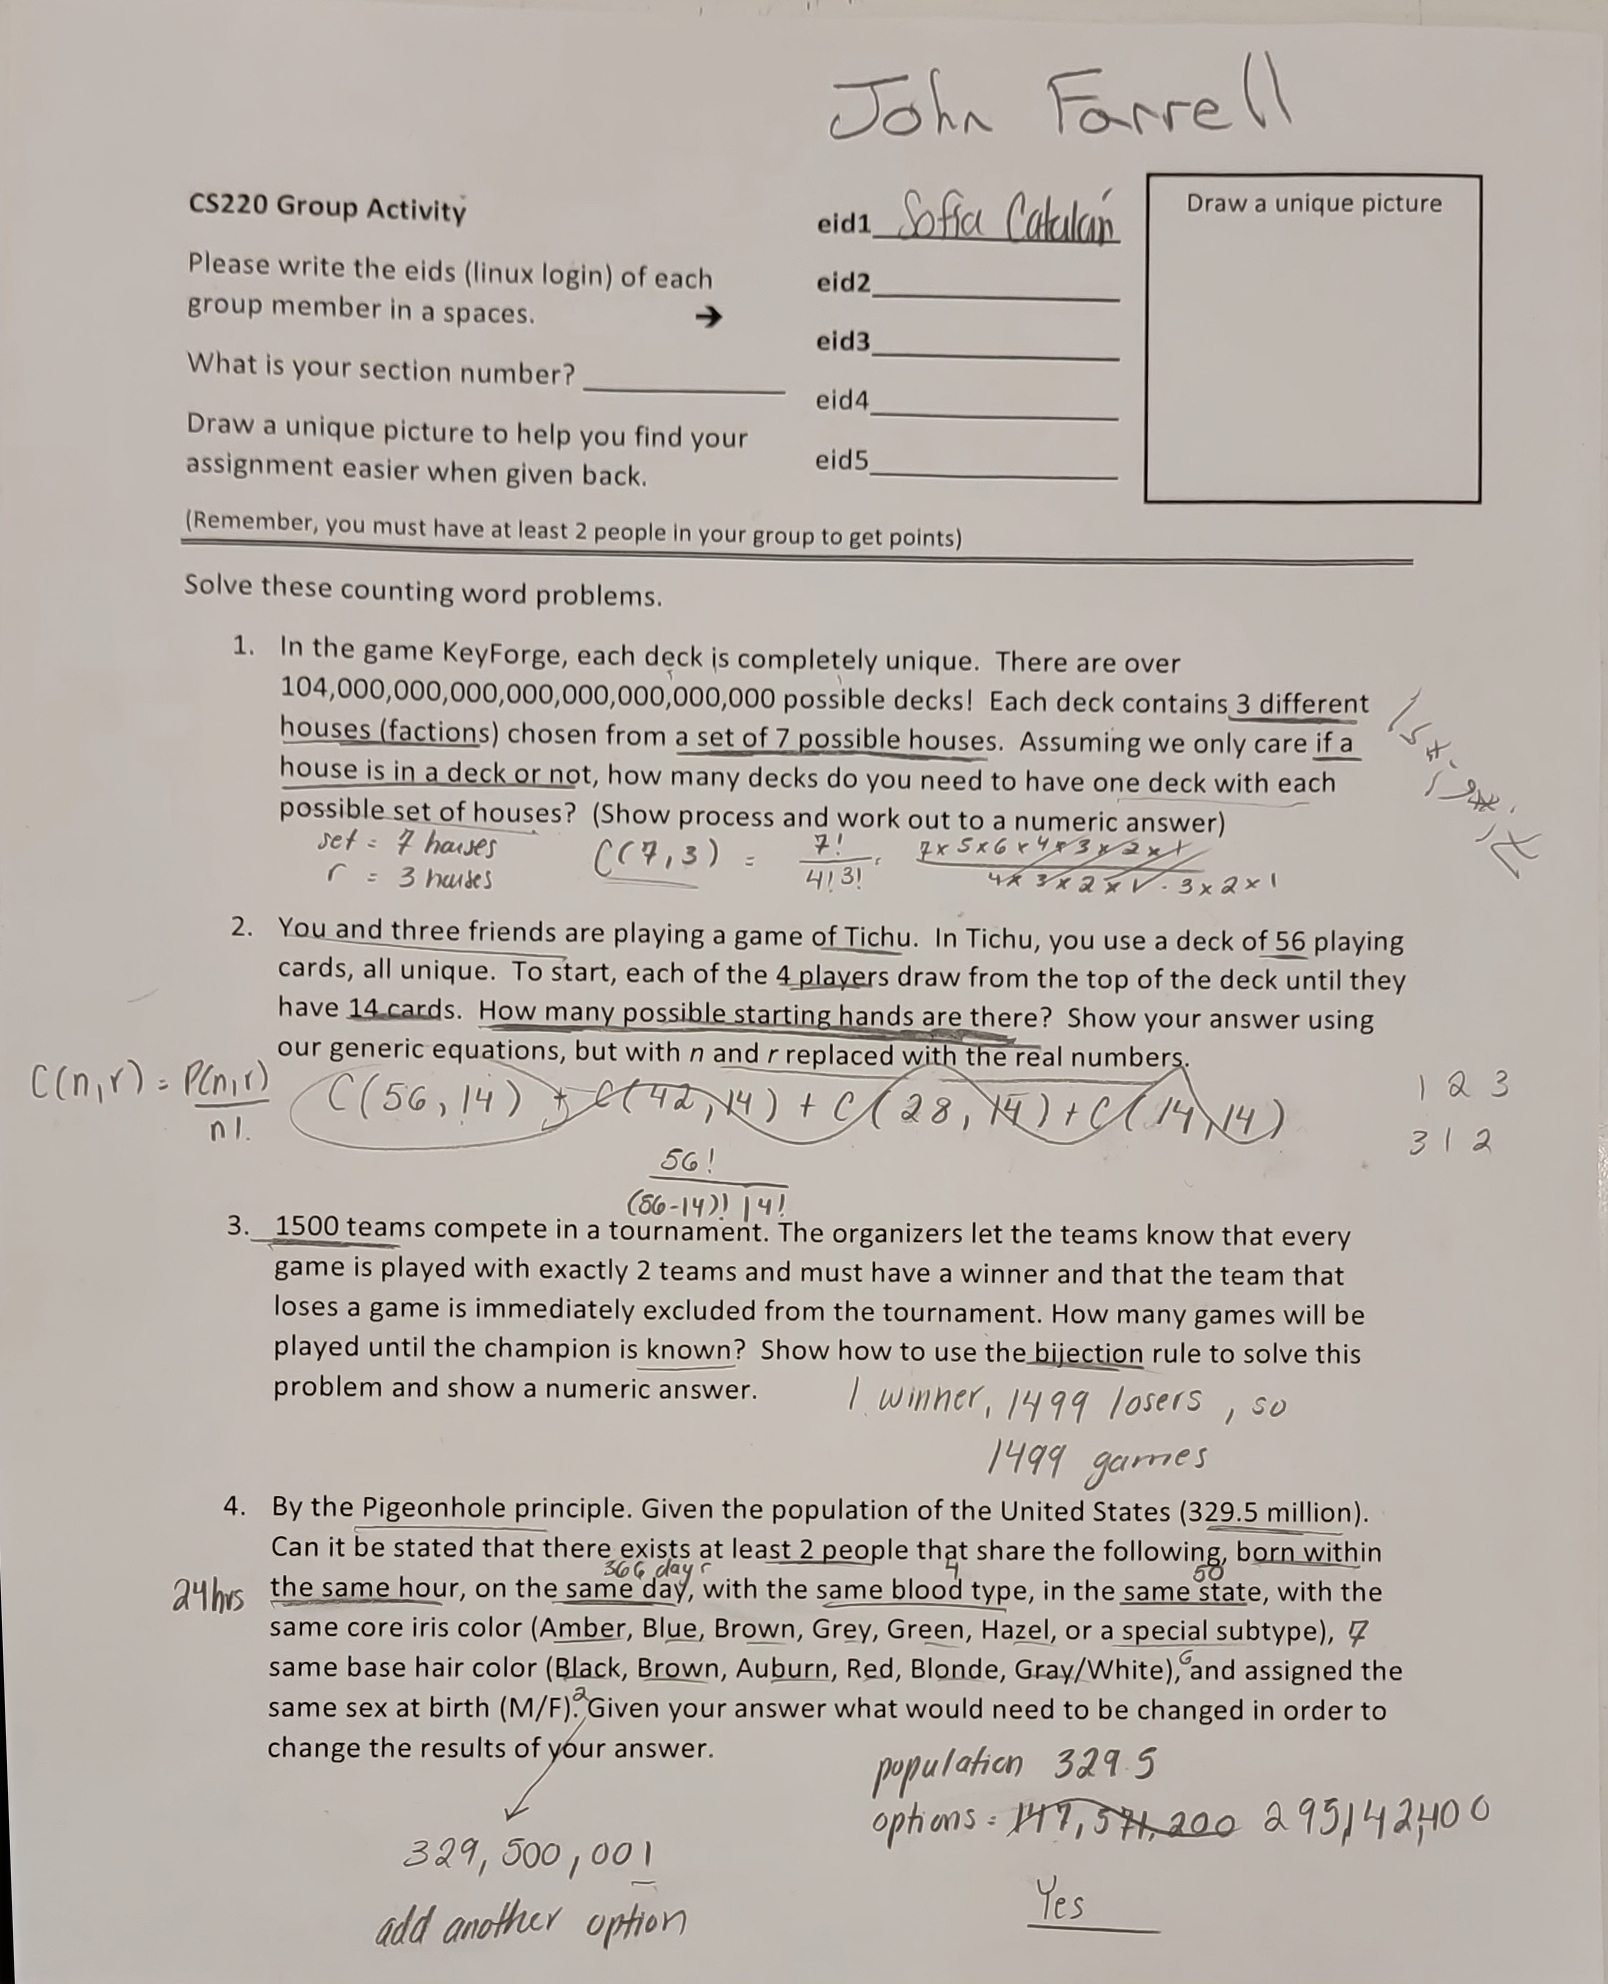 John Farrell
CS220 Group Activity
eid1 Sofía Catalán
Draw a unique picture
Please write the eids (linux login) of each
group member in a spaces. →
eid2
eid3
What is your section number?
eid4
Draw a unique picture to help you find your
assignment easier when given back.
eid5
(Remember, you must have at least 2 people in your group to get points)
Solve these counting word problems.
1. In the game KeyForge, each deck is completely unique. There are over
104,000,000,000,000,000,000,000,000 possible decks! Each deck contains 3 different
houses (factions) chosen from a set of 7 possible houses. Assuming we only care if a
house is in a deck or not, how many decks do you need to have one deck with each
possible set of houses? (Show process and work out to a numeric answer)
set = 7 houses
r = 3 houses
C(7,3) = 7! / 4!3! 7x5x6x4x3x2x1 / 4x3x2x1 · 3x2x1
2. You and three friends are playing a game of Tichu. In Tichu, you use a deck of 56 playing
cards, all unique. To start, each of the 4 players draw from the top of the deck until they
have 14 cards. How many possible starting hands are there? Show your answer using
our generic equations, but with n and r replaced with the real numbers.
C(n,r) = P(n,r) / n!
C(56,14) + C(42,14) + C(28,14) + C(14,14)
1 2 3
3 1 2
56! / (56-14)! 14!
3. 1500 teams compete in a tournament. The organizers let the teams know that every
game is played with exactly 2 teams and must have a winner and that the team that
loses a game is immediately excluded from the tournament. How many games will be
played until the champion is known? Show how to use the bijection rule to solve this
problem and show a numeric answer.
1 winner, 1499 losers, so
1499 games
4. By the Pigeonhole principle. Given the population of the United States (329.5 million).
Can it be stated that there exists at least 2 people that share the following, born within
366 days 4 50
24hrs the same hour, on the same day, with the same blood type, in the same state, with the
same core iris color (Amber, Blue, Brown, Grey, Green, Hazel, or a special subtype), 7
same base hair color (Black, Brown, Auburn, Red, Blonde, Gray/White), 6 and assigned the
same sex at birth (M/F). 2 Given your answer what would need to be changed in order to
change the results of your answer.
population 329.5
options = 147,571,200 295,142,400
329,500,001
add another option
Yes